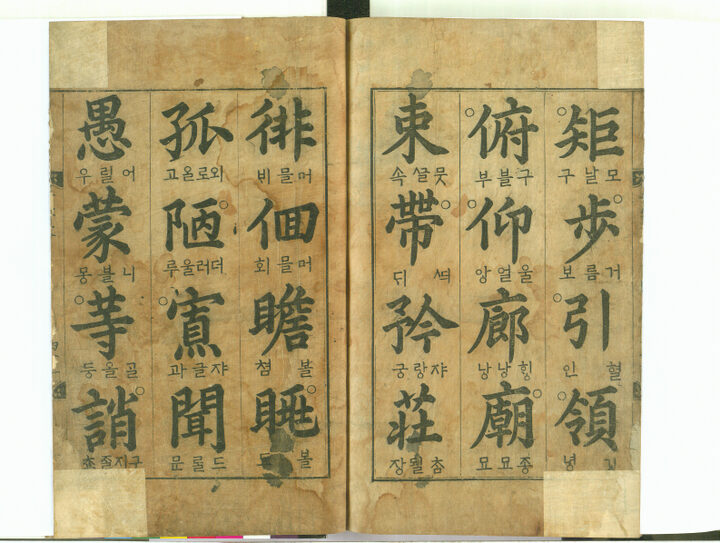 矩
모날구
步
거름보
引
혈인
領
녕
俯
구블부
仰
울얼앙
廊
힝낭낭
廟
종묘묘
束
뭇글속
帶
矜
쟈랑궁
莊
장
徘
머믈비
佪
머믈회
瞻
볼쳠
眺
볼
孤
외로올고
陋
더러울루
寡
쟈글과
聞
드롤문
愚
어릴우
蒙
니블몽
等
골올등
誚
구지줄쵸